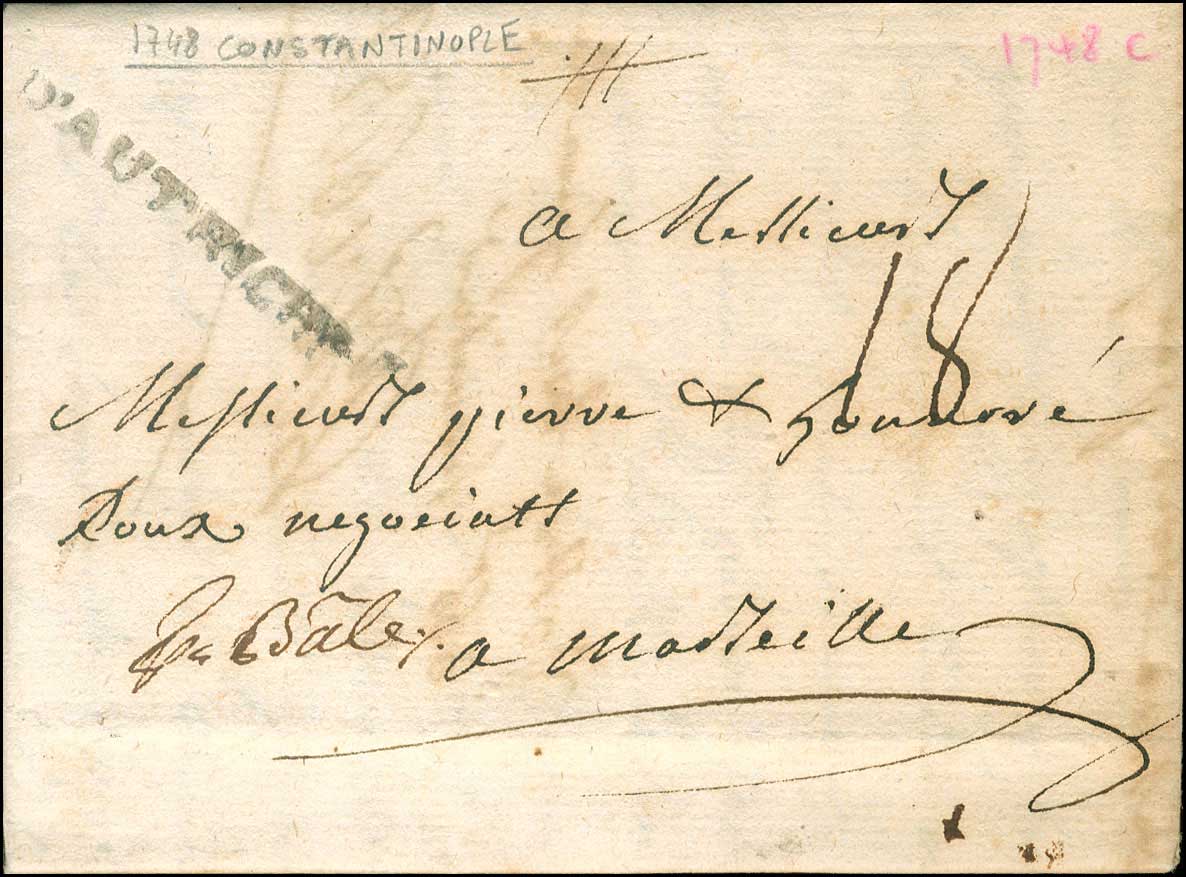 1748 CONSTANTINOPLE
1748 C
D'AUTRICHE
a Messieurs
18
Messieurs pierre & honnoré
Roux negociatts
Pr Bâle /. a Marseille